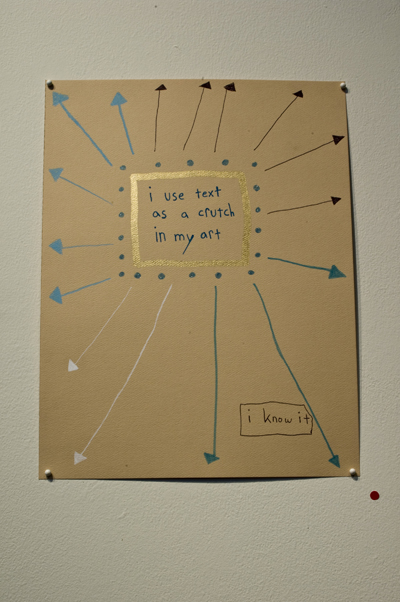 i use text
as a crutch
in my art
i know it